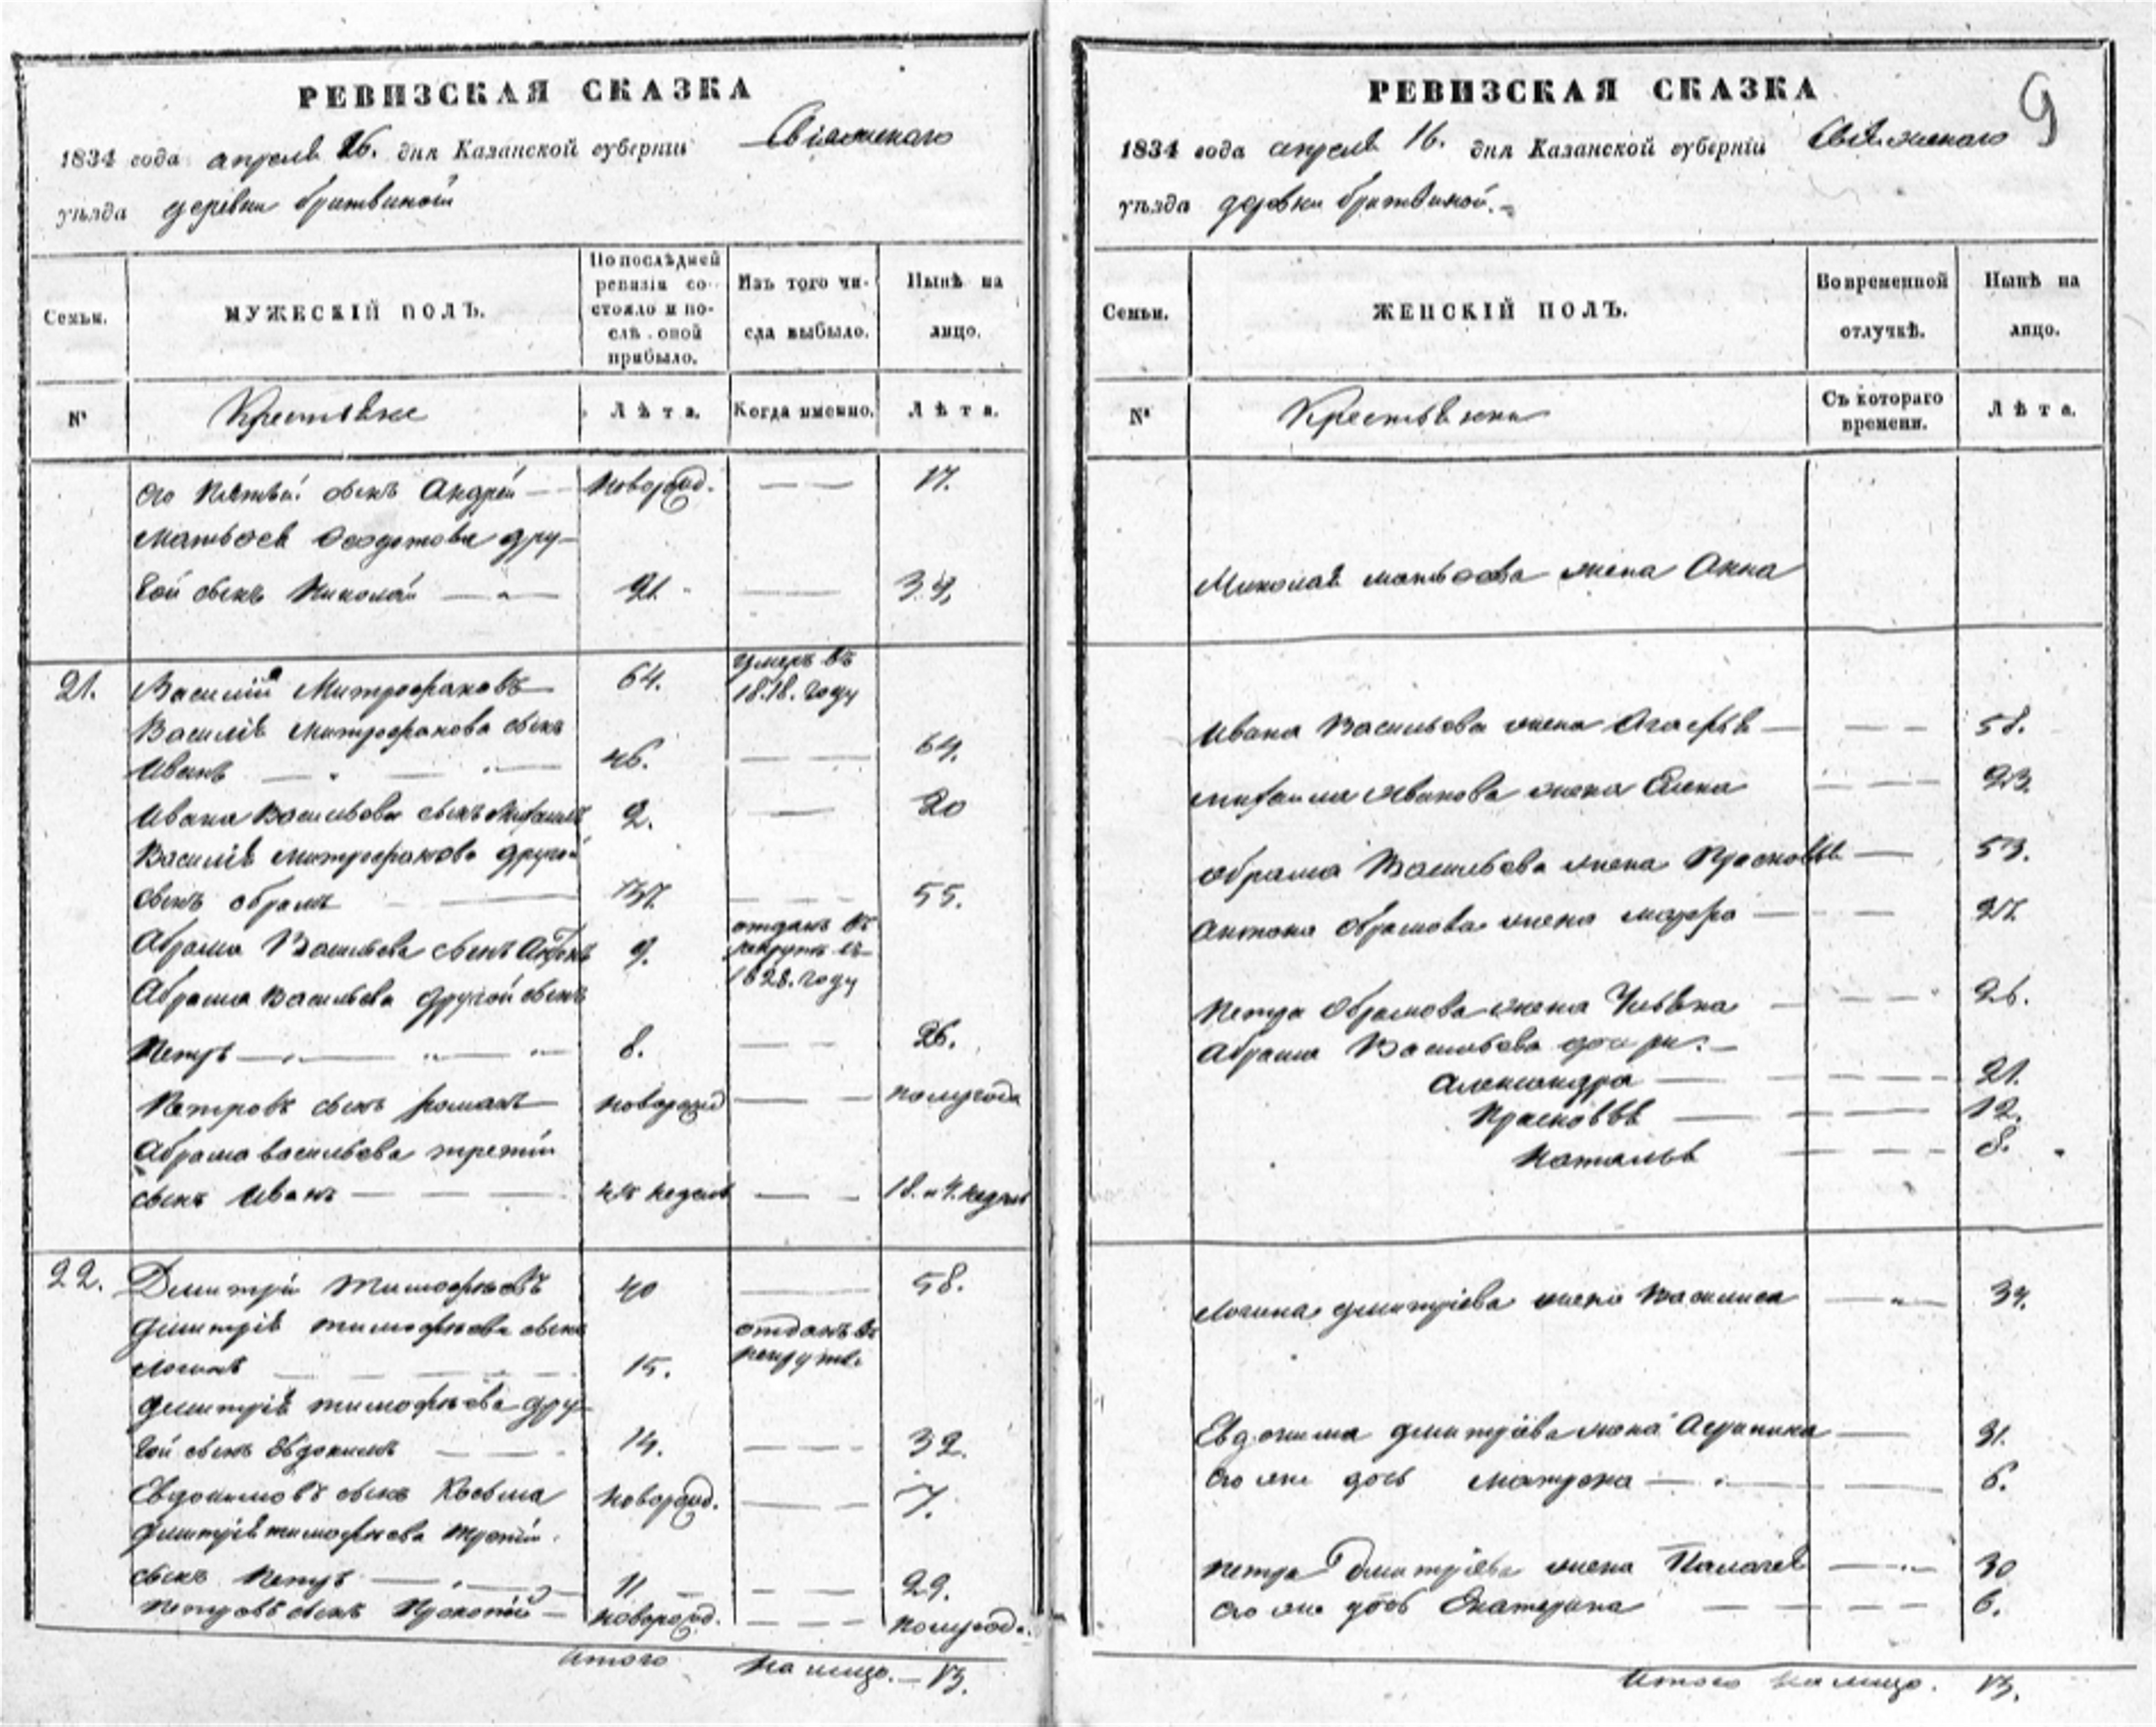 РЕВИЗСКАЯ СКАЗКА
1834 года апреля 16. дня Казанской губерніи Свіяжскаго
уѣзда деревни бритвиной
Семьи.
МУЖЕСКІЙ ПОЛЪ.
По послѣдней ревизіи состояло и послѣ оной прибыло.
Изъ того числа выбыло.
Нынѣ на лицо.
№
Крестьяне
Лѣта.
Когда именно.
Лѣта.
его сынъ Андрей — новорожд. — — 17.
Матвѣея Федотова дру-
гой сынъ Николай — 21. —
21. Василій Митрофановъ 64. умеръ въ 1818. году
Василія Митрофанова сынъ
Иванъ — 46. — 64.
Ивана Васильева сынъ Михаилъ 2. — 20
Василія Митрофанова другой
сынъ обрамъ — 37. — 55.
Абрама Васильева сынъ Антонъ 9. отданъ въ рекруты въ 1828. году
Абрама Васильева другой сынъ
Петръ — 8. — 26.
Петровъ сынъ романъ новорожд — полугода
Абрама васильева третій
сынъ Иванъ — недель — 18. и 4. недели
22. Дмитрій Тимофѣевъ 40 — 58.
дмитрія тимофѣева сынъ
логинъ — 15. отданъ въ рекруты
дмитрія тимофѣева дру-
гой сынъ Евдокимъ — 14. — 32.
Евдокимовъ сынъ Косьма новорожд. — 7.
дмитрія тимофѣева третій
сынъ Петръ — 11 — 29.
петровъ сынъ Прокопій — новорожд. — полугода.
Итого на лицо. — 13.
РЕВИЗСКАЯ СКАЗКА 9
1834 года апреля 16. дня Казанской губерніи Свіяжскаго
уѣзда деревни бритвиной. —
Семьи.
ЖЕНСКІЙ ПОЛЪ.
Во временной отлучкѣ.
Нынѣ на лицо.
№
Крестьянки
Съ котораго времени.
Лѣта.
Николая матвѣева жена Анна
Ивана Васильева жена Агафья — 58.
михаила Иванова жена Елена — 23.
обрама Васильева жена Прасковья — 53.
антона обрамова жена мавра — 27.
петра обрамова жена Ульяна — 26.
Абрама Васильева дочери: —
Александра — 21.
Прасковья — 12.
Наталья — 8.
логина дмитріева жена Василиса — 34.
Евдокима дмитріева жена — 31.
его же дочь матрена — 6.
петра Дмитріева жена Палагея — 30
его же дочь Екатерина — 6.
Итого на лицо. 13.